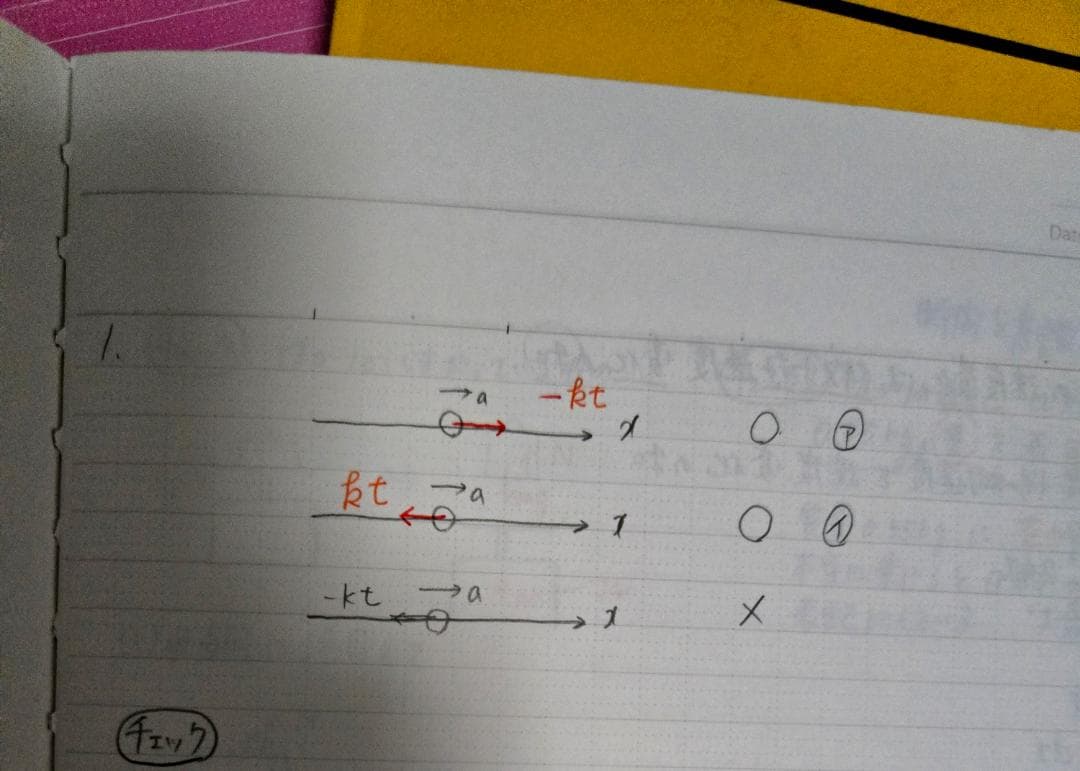 Date
1.
→a -kt x ○ ㋐
kt →a x ○ ㋑
-kt →a x ×
チェック